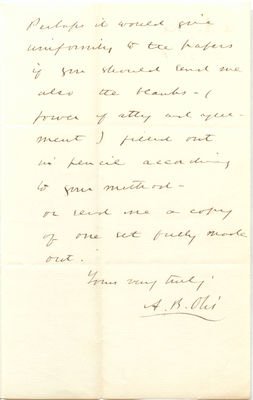 Perhaps it would give
uniformity to the papers
if you should send me
also the blanks - (
power of atty and agree-
ment) filled out
in pencil according
to your method -
or send me a copy
of one set fully made
out.
Yours very truly,
A. B. Otis